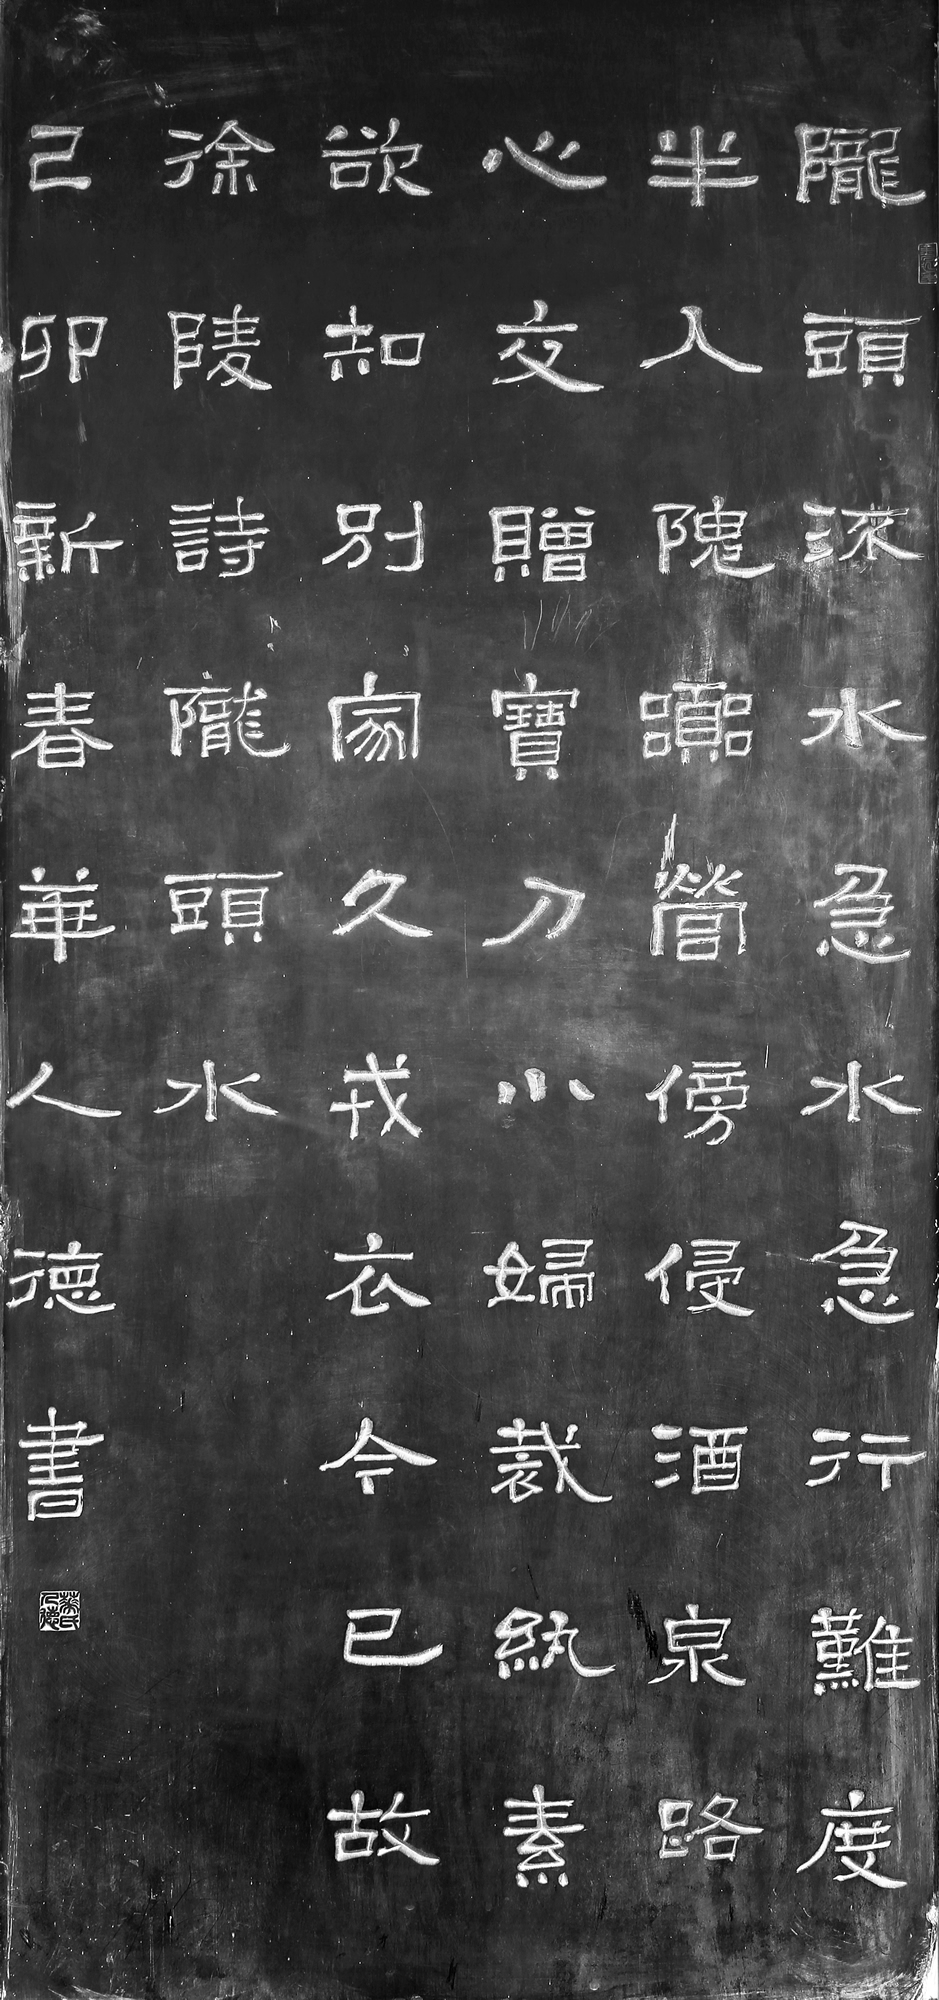 隴頭流水急水急行難度
半入隗囂營傍侵酒泉路
心交贈寶刀小婦裁紈素
欲知別家久戎衣今已故
徐陵詩隴頭水
己卯新春華人德書
華氏人德